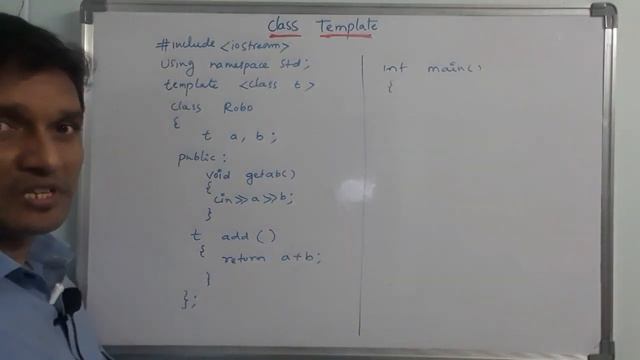 Class Template
#include <iostream>
Using namespace Std;
template <class t>
class Robo
{
t a, b ;
public:
void getab()
{
Cin>>a>>b;
}
t add ()
{
return a+b;
}
};
int main()
{